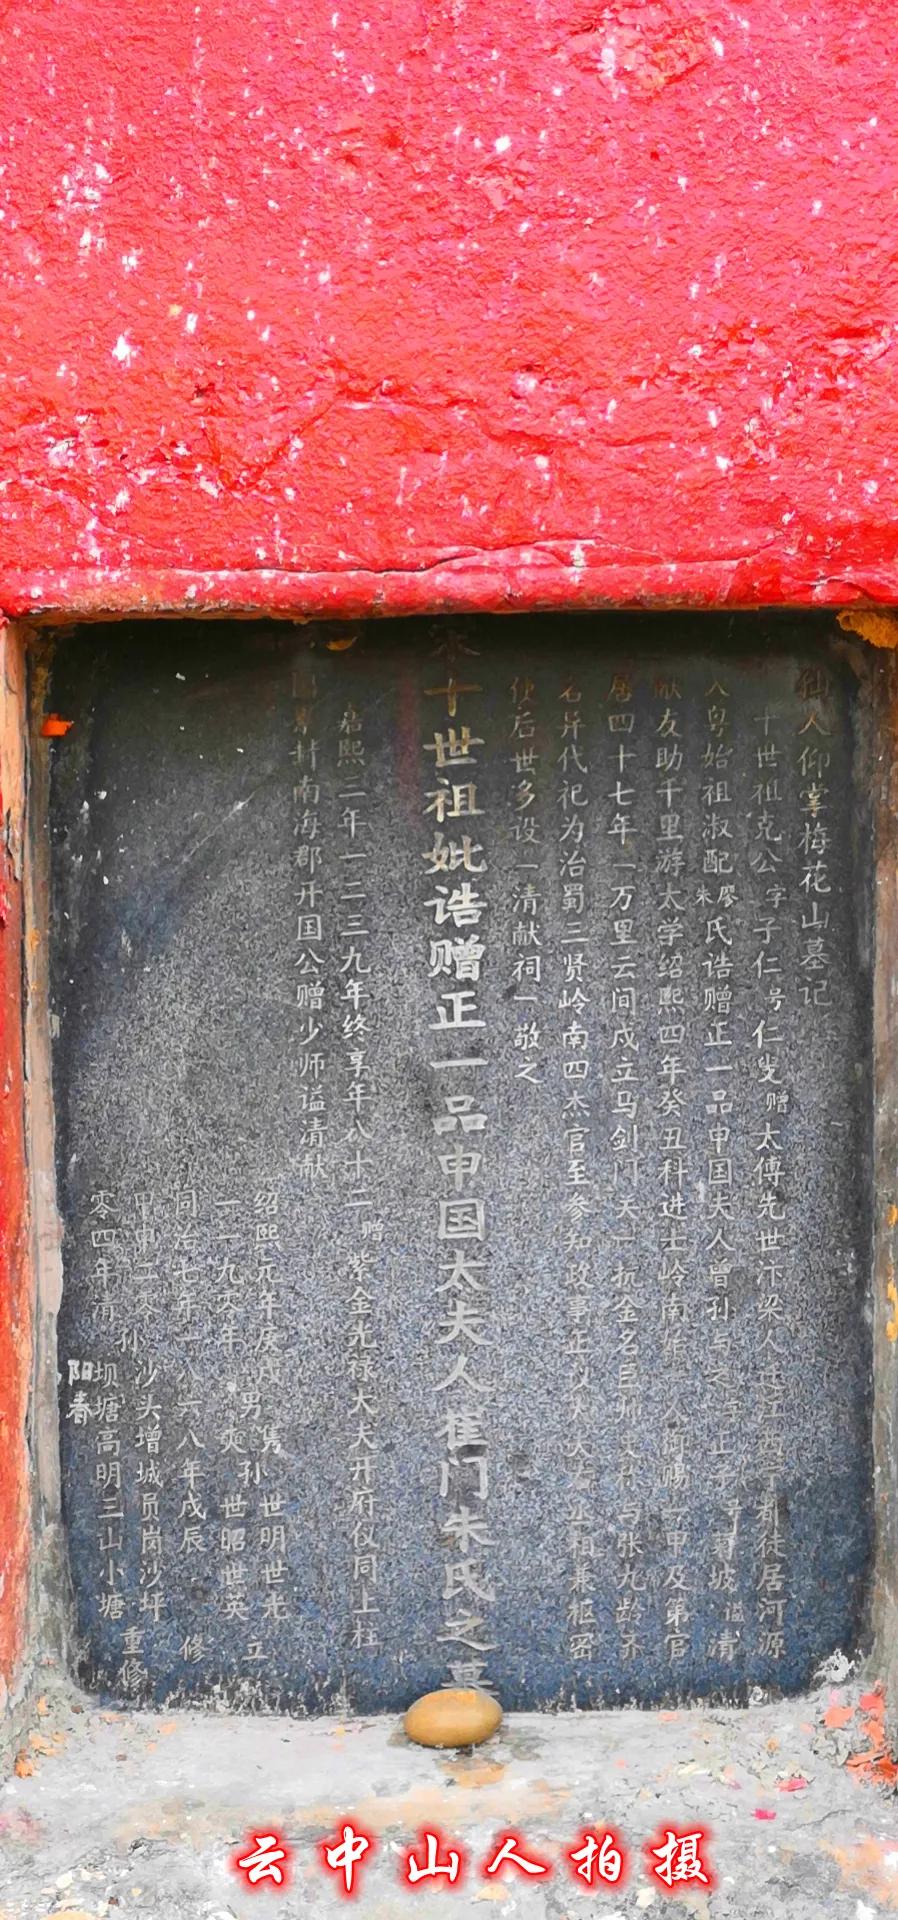 仙人仰掌梅花山墓记
十世祖克公字子仁号仁叟赠太傅先世汴梁人迁江西宁都徒居河源
入粤始祖淑配廖朱氏诰赠正一品申国夫人曾孙与之字正子号菊坡谥清
献友助千里游太学绍熙四年癸丑科进士岭南 一人御赐一甲及第官
居四十七年一万里云间戍立马剑门天一抗金名 与张九龄齐
名异代祀为治蜀三贤岭南四杰官至参知政事正议大夫丞相兼枢密
使后世多设一清献祠一敬之
宋十世祖妣诰赠正一品申国太夫人崔门朱氏之墓
嘉熙三年一二三九年终享年八十二赠紫金光禄大夫开府仪同上柱
国 封南海郡开国公赠少师谥清献
绍熙元年庚戌男隽孙世明世光
一一九零年 奭 世昭世英 立
同治七年一八六八年戊辰 修
甲申二零 孙 沙头增城员岗沙坪
零四年清 坝塘高明三山小塘 重修
阳春
云中山人拍摄